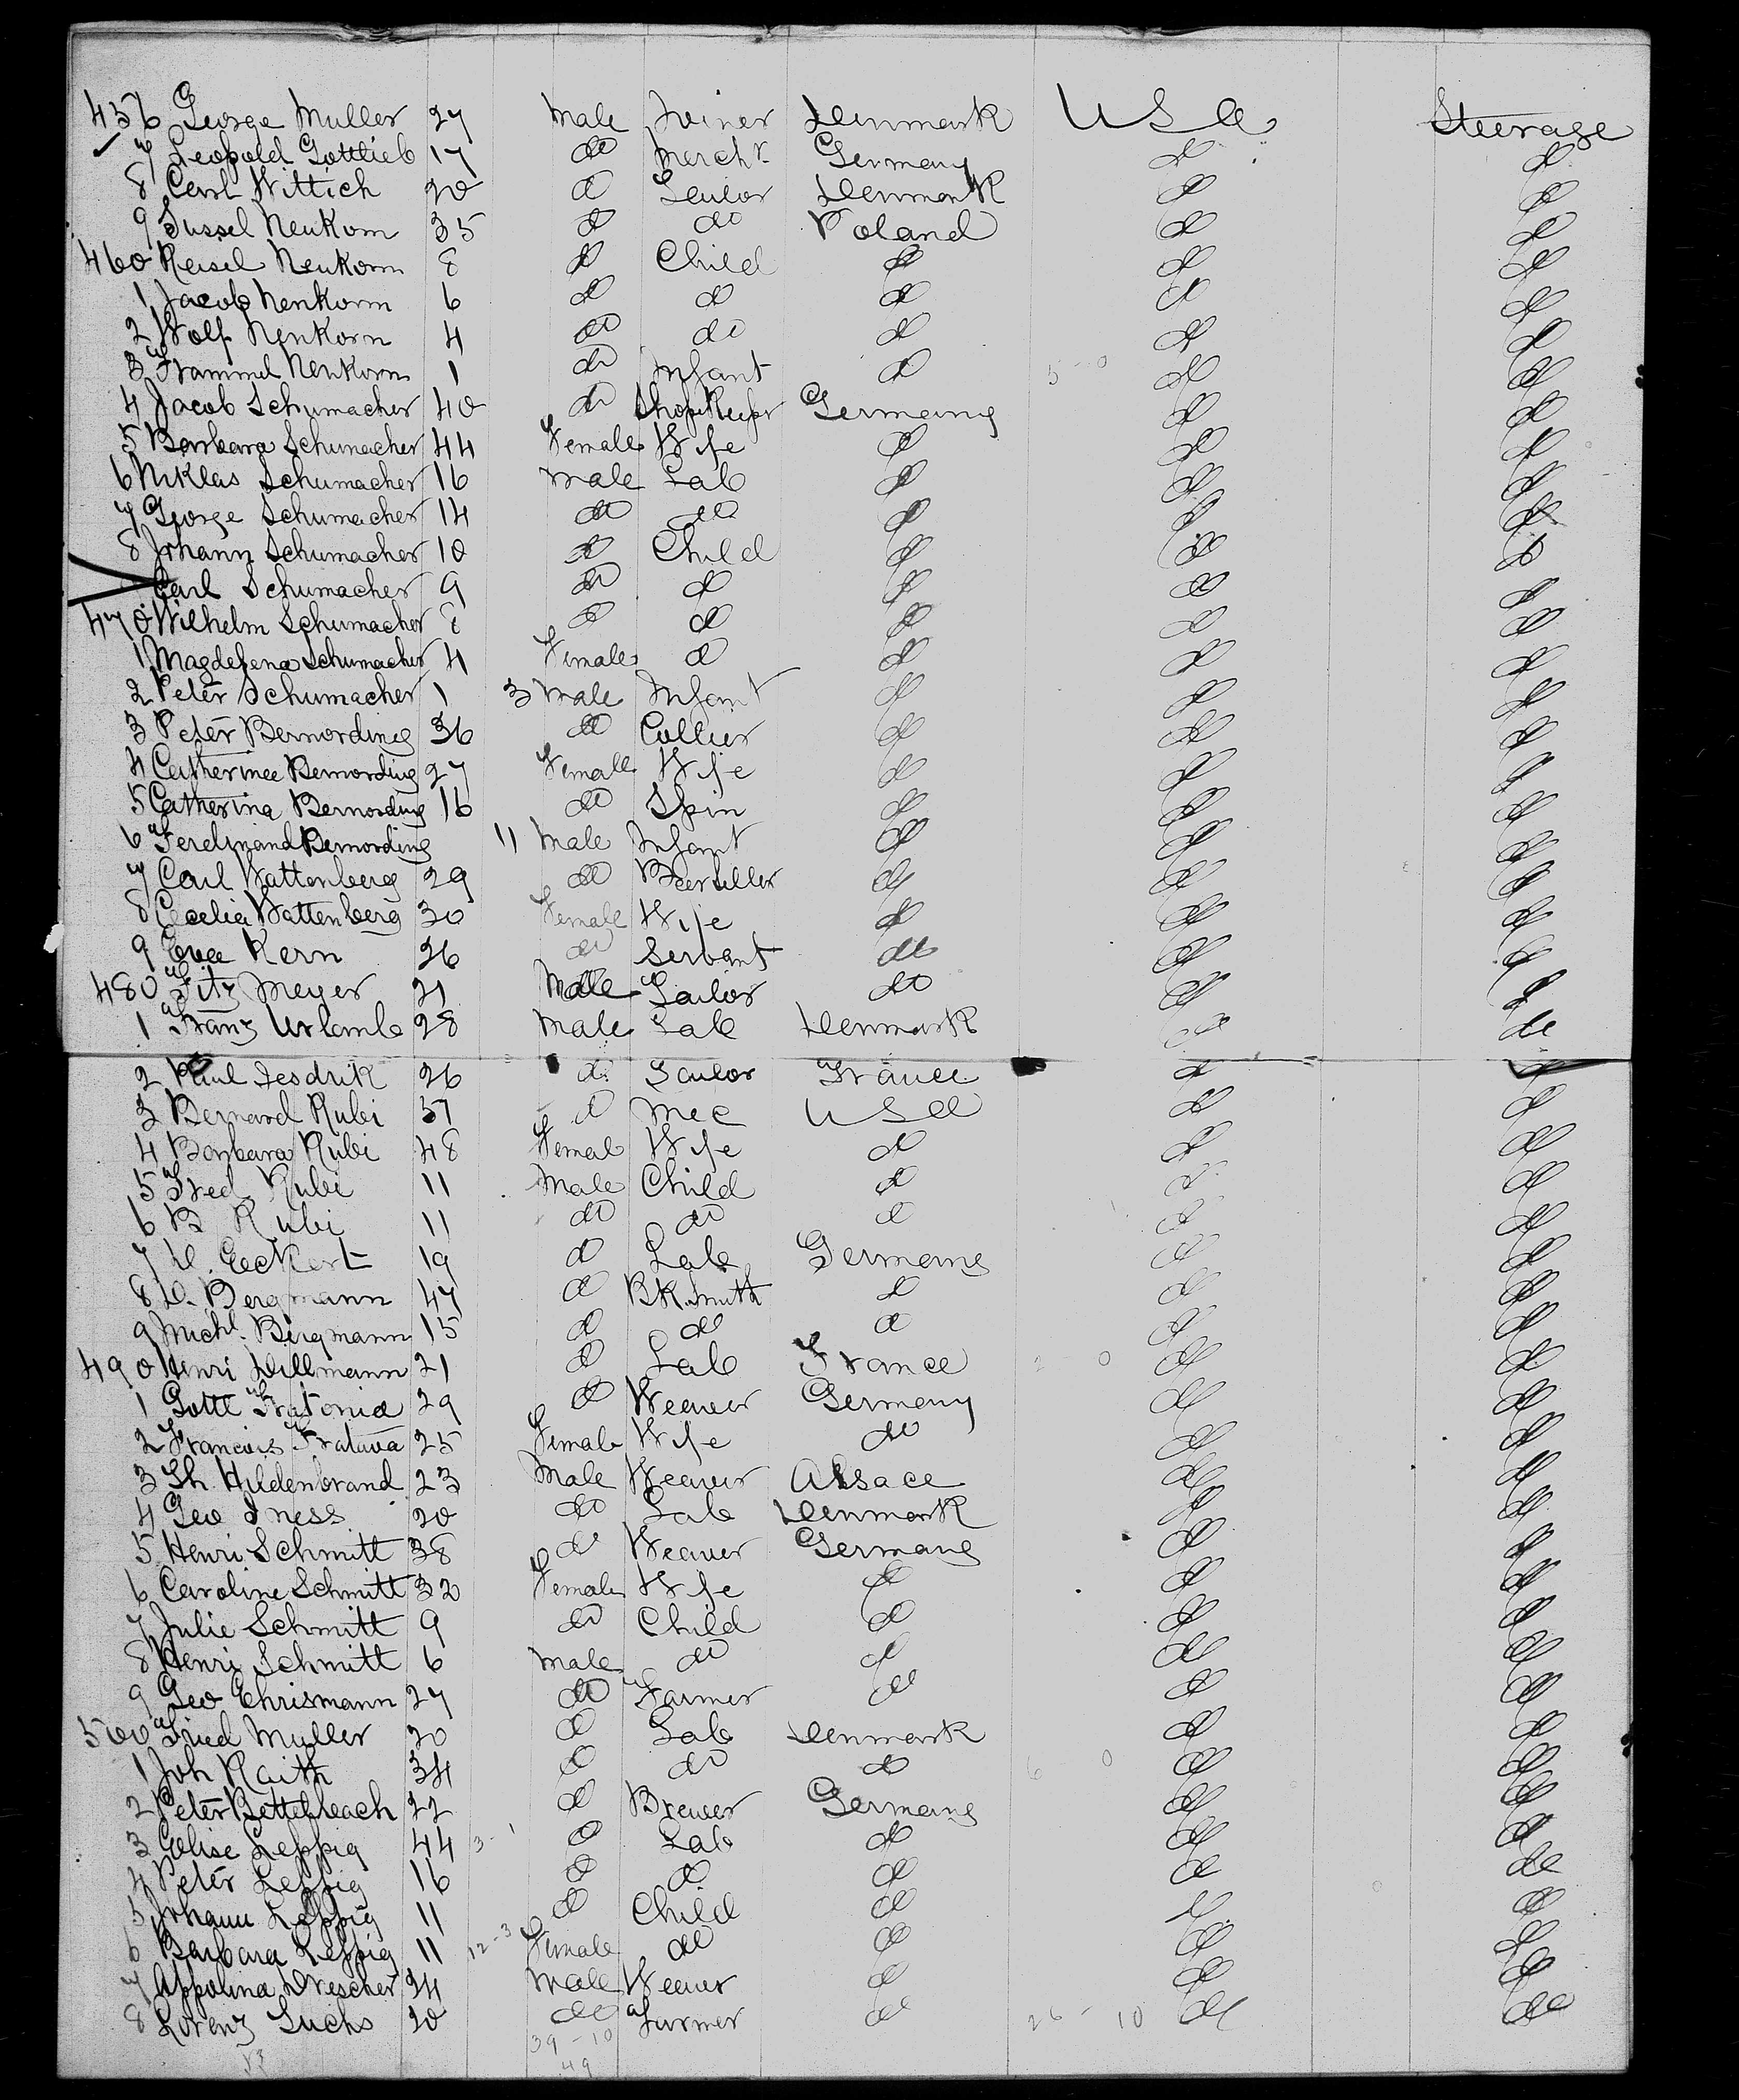 456 George Muller 27 Male Joiner Denmark U S A Steerage
7 Leopold Gottlieb 17 do Mercht Germany do do
8 Carl Wittich 20 do Tailor Denmark do do
9 Sussel Neukorn 35 do do Poland do do
460 Reisel Neukorn 8 do Child do do do
1 Jacob Neukorn 6 do do do do do
2 Wolf Neukorn 4 do do do do do
3 Frammel Neukorn 1 do Infant do 5 - 0 do do
4 Jacob Schumacher 40 do Shopkeeper Germany do do
5 Barbara Schumacher 44 Female Wife do do do
6 Niklas Schumacher 16 Male Lab do do do
7 George Schumacher 14 do do do do do
8 Johann Schumacher 10 do Child do do do
Carl Schumacher 9 do do do do do
470 Wilhelm Schumacher 8 do do do do do
1 Magdelena Schumacher 4 Female do do do do
2 Peter Schumacher 1 3 Male Infant do do do
3 Peter Bernording 36 do Collier do do do
4 Catherine Bernording 27 Female Wife do do do
5 Catherina Bernording 16 do Spin do do do
6 Ferdinand Bernording 11 Male Infant do do do
7 Carl Wattenberg 29 do Beerseller do do do
8 Cecelia Wattenberg 30 Female Wife do do do
9 Eva Kern 26 do Servant do do do
480 Fitz Meyer 21 Male Tailor do do do
1 Franz Urlamb 28 Male Lab Denmark do do
2 Paul Fesdrik 26 do Tailor France do do
3 Bernard Rubi 57 do Mec U S A do do
4 Barbara Rubi 48 Female Wife do do do
5 Fred Rubi 11 Male Child do do do
6 B Rubi 11 do do do do do
7 Eckert 19 do Lab Germany do do
8 D. Bergmann 47 do Bk. Smith do do do
9 Michl. Bergmann 15 do do do do do
490 Henri Dillmann 21 do Lab France 2 0 do do
1 Gottl Fratonia 29 do Weaver Germany do do
2 Francois Fratava 25 Female Wife do do do
3 Th. Hildenbrand 23 Male Weaver Alsace do do
4 Geo Iness 20 do Lab Denmark do do
5 Henri Schmitt 38 do Weaver Germany do do
6 Caroline Schmitt 32 Female Wife do do do
7 Julie Schmitt 9 do Child do do do
8 Henri Schmitt 6 Male do do do do
9 Geo Chrismann 27 do Farmer do do do
500 Fried Muller 20 do Lab Denmark do do
1 Joh Raith 34 do do do 6 0 do do
2 Peter Bettelbeach 22 do Brewer Germany do do
3 Elise Leppig 44 3 - 1 do Lab do do do
4 Peter Leppig 16 do do do do do
5 Johann Leppig 11 do Child do do do
6 Barbara Leppig 11 12 - 3 Female do do do do
7 Appolina Drescher 24 Male Weaver do do do
8 Lorenz Luchs 20 do Farmer do 26 - 10 do do
39 - 10
49